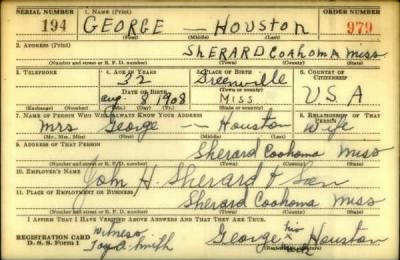 SERIAL NUMBER 1. NAME (Print) ORDER NUMBER
194 GEORGE — HOUSTON 979
(First) (Middle) (Last)
2. ADDRESS (Print)
SHERARD COAHOMA MISS
(Number and street or R. F. D. number) (Town) (County) (State)
3. TELEPHONE 4. AGE IN YEARS 5. PLACE OF BIRTH 6. COUNTRY OF CITIZENSHIP
32 Greenville
DATE OF BIRTH (Town or county)
Aug 2 1908 MISS U.S.A
(Exchange) (Number) (Mo.) (Day) (Yr.) (State or country)
7. NAME OF PERSON WHO WILL ALWAYS KNOW YOUR ADDRESS 8. RELATIONSHIP OF THAT PERSON
Mrs George — Houston Wife
(Mr., Mrs., Miss) (First) (Middle) (Last)
9. ADDRESS OF THAT PERSON
Sherard Coahoma Miss
(Number and street or R. F. D. number) (Town) (County) (State)
10. EMPLOYER'S NAME
John H. Sherard & Son
11. PLACE OF EMPLOYMENT OR BUSINESS
Sherard Coahoma Miss
(Number and street or R. F. D. number) (Town) (County) (State)
I AFFIRM THAT I HAVE VERIFIED ABOVE ANSWERS AND THAT THEY ARE TRUE.
REGISTRATION CARD Witness George his Houston
D. S. S. Form 1 Smith mark